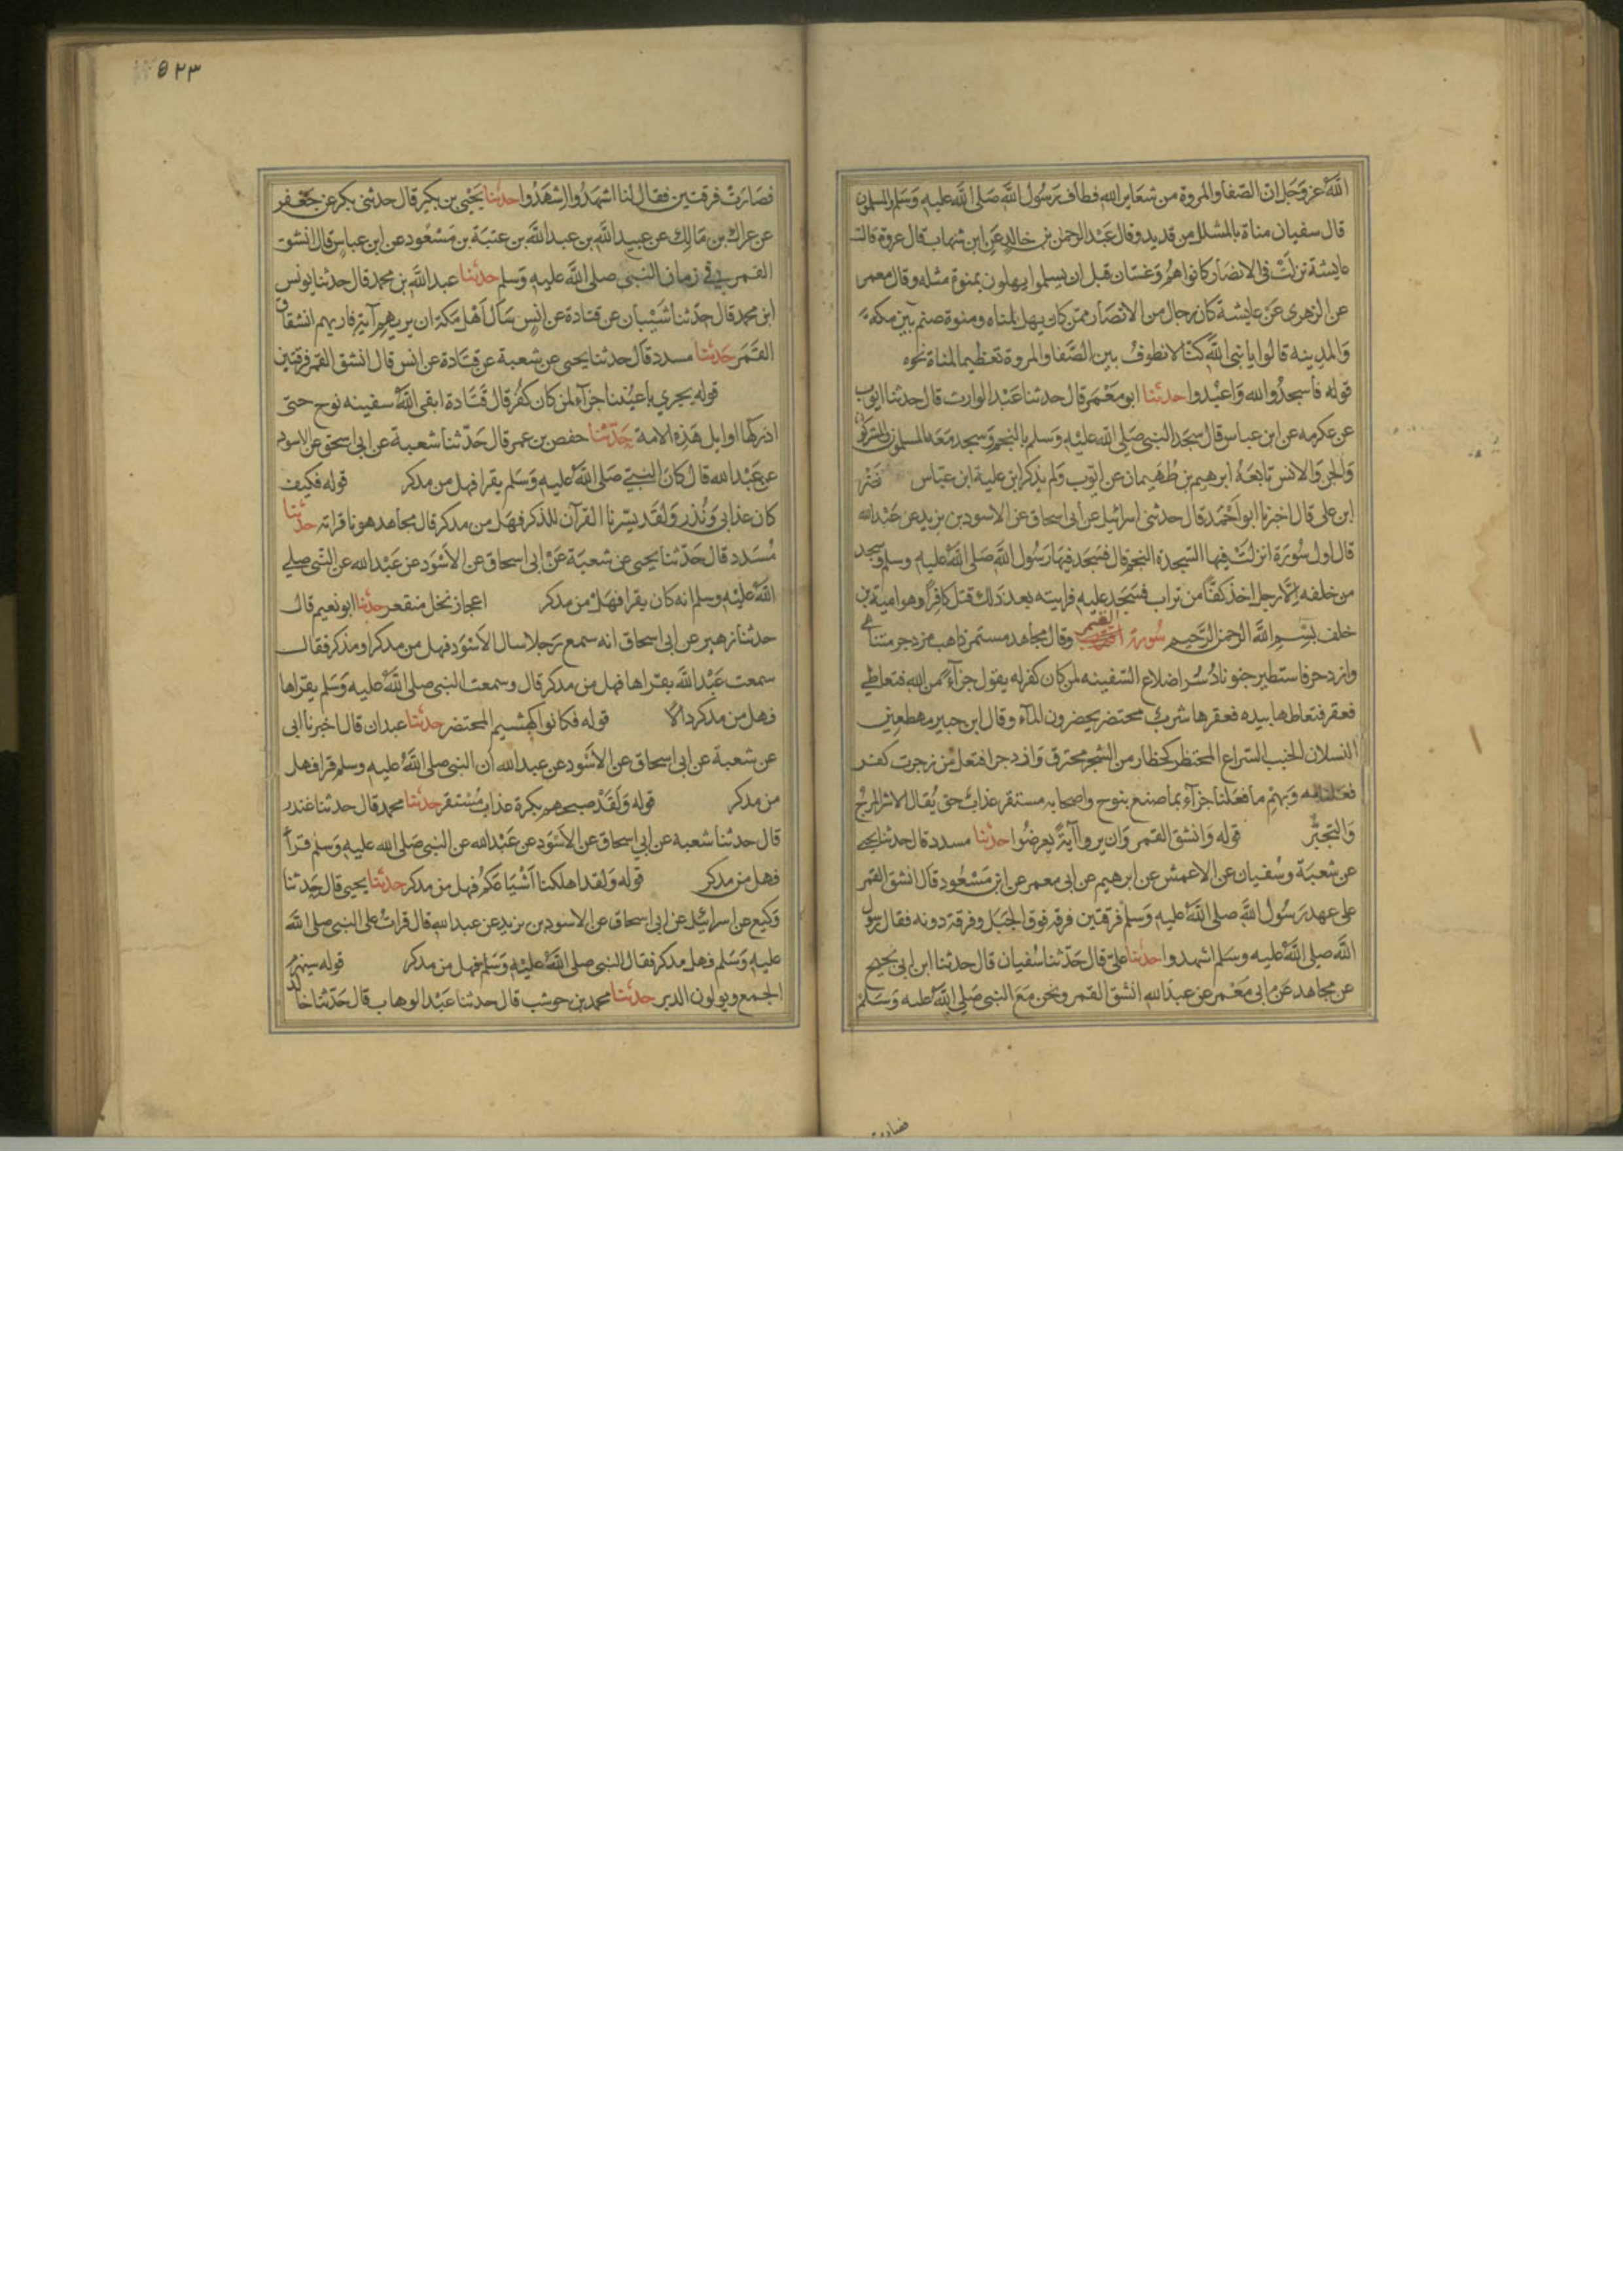 الله عز وجل ان الصفا والمروة من شعاير الله فطاف رسول الله صلى الله عليه وسلم والمسلمون
قال سفيان مناة بالمشلل من قديد وقال عبد الرحمن بن خالد عن ابن شهاب قال عروة قالت
عايشة نزلت في الانصار كانوا هم وغسان قبل ان يسلموا يهلون بمنوة مثله وقال معمر
عن الزهرى عن عايشة كان رجال من الانصار ممن كان يهل لمناه ومنوة صنم بين مكه
والمدينه قالوا يا نبي الله كنا لا نطوف بين الصفا والمروة تعظيما لمناة نحوه
قوله فاسجدوا لله واعبدوا حدثنا ابو معمر قال حدثنا عبد الوارث قال حدثنا ايوب
عن عكرمه عن ابن عباس قال سجد النبي صلى الله عليه وسلم بالنجم وسجد معه المسلمون والمشركون
والجن والانس تابعه ابرهيم بن طهيمان عن ايوب ولم يذكر ابن علية ابن عباس نصر
ابن على قال اخبرنا ابو احمد قال حدثنى اسرائيل عن ابى اسحاق عن الاسود بن يزيد عن عبد الله
قال اول سورة انزلت فيها السجدة النجم قال فسجد فيها رسول الله صلى الله عليه وسلم وسجد
من خلفه الا رجل اخذ كفا من تراب فسجد عليه فرايته بعد ذلك قتل كافرا وهو امية بن
خلف بسم الله الرحمن الرحيم سورة القمر وقال مجاهد مستمر ذاهب مزدجر متناهي
وازدجر فاستطير جنونا دسر اضلاع السفينه لمن كان كفر له يقول جزآء من الله فتعاطي
فعقر فتعاطاها بيده فعقرها شرب محتضر يحضرون المآء وقال ابن جبير مهطعين
النسلان الخبب السراع المحتظر كحظار من الشجر محترق وازدجر افتعل من زجرت كفر
فعلنا به وبهم ما فعلنا جزآء بما صنع بنوح واصحابه مستقر عذاب حق يقال الاشر المرح
والتجبر قوله وانشق القمر وان يروا آية يعرضوا حدثنا مسدد قال حدثنا يحيى
عن شعبة وسفيان عن الاعمش عن ابرهيم عن ابى معمر عن ابن مسعود قال انشق القمر
على عهد رسول الله صلى الله عليه وسلم فرقتين فرقه فوق الجبل وفرقة دونه فقال رسول
الله صلى الله عليه وسلم اشهدوا حدثنا علي قال حدثنا سفيان قال حدثنا ابن ابى نجيح
عن مجاهد عن ابى معمر عن عبد الله انشق القمر ونحن مع النبي صلى الله عليه وسلم
فصارت
٥٢٣
فصارت فرقتين فقال لنا اشهدوا اشهدوا حدثنا يحيى بن بكير قال حدثنى بكر عن جعفر
عن عراك بن مالك عن عبيد الله بن عبد الله بن عتبة بن مسعود عن ابن عباس قال انشق
القمر في زمان النبي صلى الله عليه وسلم حدثنا عبد الله بن محمد قال حدثنا يونس
ابن محمد قال حدثنا شيبان عن قتادة عن انس سال اهل مكة ان يريهم آية فاريهم انشقاق
القمر حدثنا مسدد قال حدثنا يحيى عن شعبة عن قتادة عن انس قال انشق القمر فرقتين
قوله يجري باعيننا جزآء لمن كان كفر قال قتادة ابقى الله سفينه نوح حتى
ادركها اوايل هذه الامة حدثنا حفص بن عمر قال حدثنا شعبة عن ابى اسحق عن الاسود
عن عبد الله قال كان النبي صلى الله عليه وسلم يقرا فهل من مدكر قوله فكيف
كان عذابي ونذر ولقد يسرنا القرآن للذكر فهل من مدكر قال مجاهد هونا قراته حدثنا
مسدد قال حدثنا يحيى عن شعبة عن ابى اسحاق عن الاسود عن عبد الله عن النبى صلى
الله عليه وسلم انه كان يقرا فهل من مدكر اعجاز نخل منقعر حدثنا ابو نعيم قال
حدثنا زهير عن ابى اسحاق انه سمع رجلا سال الاسود فهل من مدكر او مذكر فقال
سمعت عبد الله يقراها فهل من مدكر قال وسمعت النبي صلى الله عليه وسلم يقراها
فهل من مدكر دالا قوله فكانوا كهشيم المحتضر حدثنا عبدان قال اخبرنا ابى
عن شعبة عن ابى اسحاق عن الاسود عن عبد الله ان النبي صلى الله عليه وسلم قرا فهل
من مدكر قوله ولقد صبحهم بكرة عذاب مستقر حدثنا محمد قال حدثنا غندر
قال حدثنا شعبة عن ابي اسحاق عن الاسود عن عبد الله عن النبي صلى الله عليه وسلم قرأ
فهل من مدكر قوله ولقد اهلكنا اشياعكم فهل من مدكر حدثنا يحيى قال حدثنا
وكيع عن اسرائيل عن ابى اسحاق عن الاسود بن يزيد عن عبد الله قال قرات على النبى صلى الله
عليه وسلم فهل مدكر فقال النبي صلى الله عليه وسلم فهل من مدكر قوله سيهزم
الجمع ويولون الدبر حدثنا محمد بن حوشب قال حدثنا عبد الوهاب قال حدثنا خالد